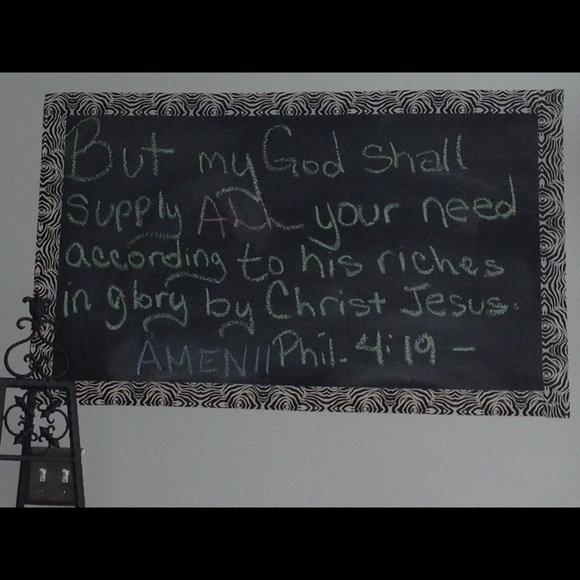 But my God shall
supply ALL your need
according to his riches
in glory by Christ Jesus.
AMEN!! Phil- 4:19 -